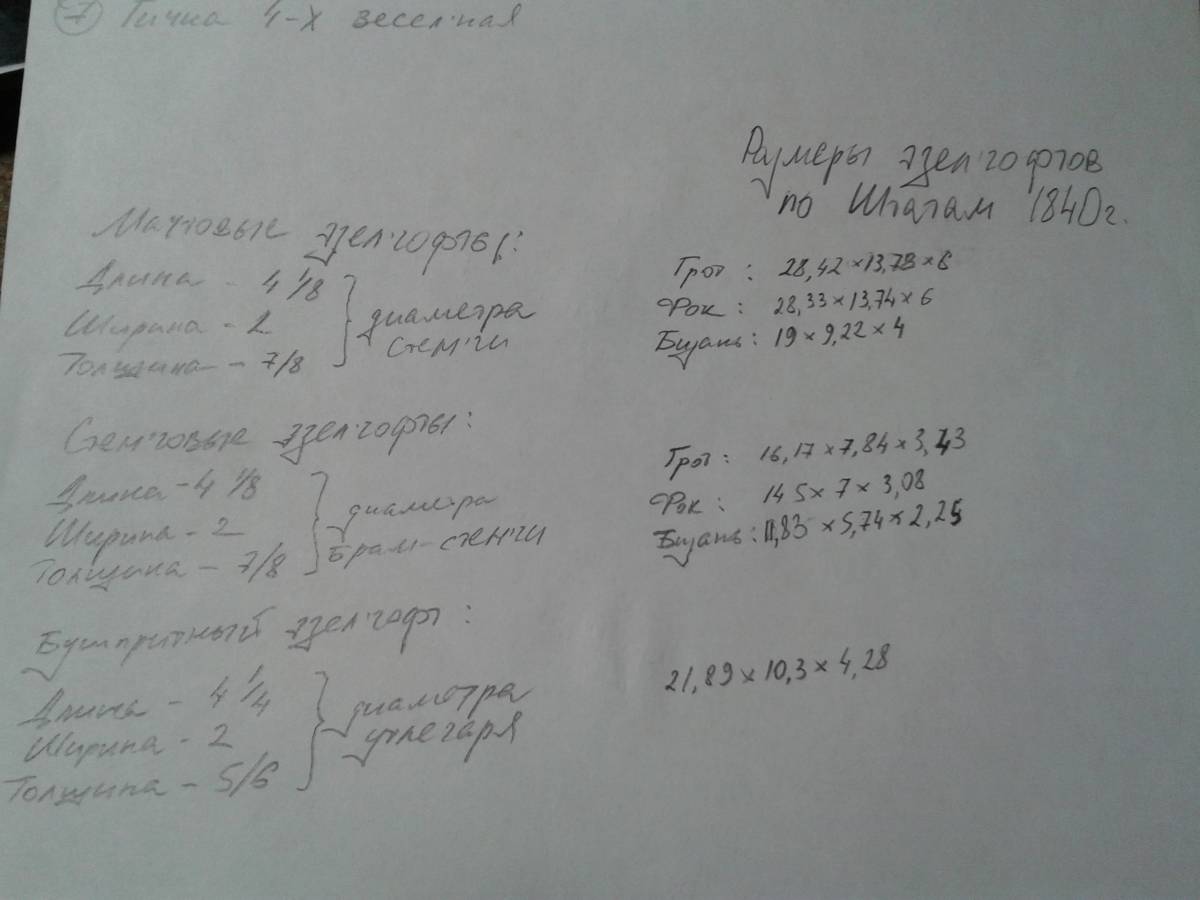 7 Гичка 4-х весельная
Размеры эзельгофтов
по Штатам 1840 г.
Мачтовые эзельгофты:
Длина - 4 1/8
Ширина - 2
Толщина - 7/8
диаметра
стеньги
Грот: 28,42×13,78×6
Фок: 28,33×13,74×6
Бизань: 19×9,22×4
Стеньговые эзельгофты:
Длина - 4 1/8
Ширина - 2
Толщина - 7/8
диаметра
Брам-стеньги
Грот: 16,17×7,84×3,43
Фок: 14 5×7×3,08
Бизань: 11,83×5,74×2,25
Бушпритный эзельгофт:
Длина - 4 1/4
Ширина - 2
Толщина - 5/6
диаметра
утлегаря
21,89×10,3×4,28